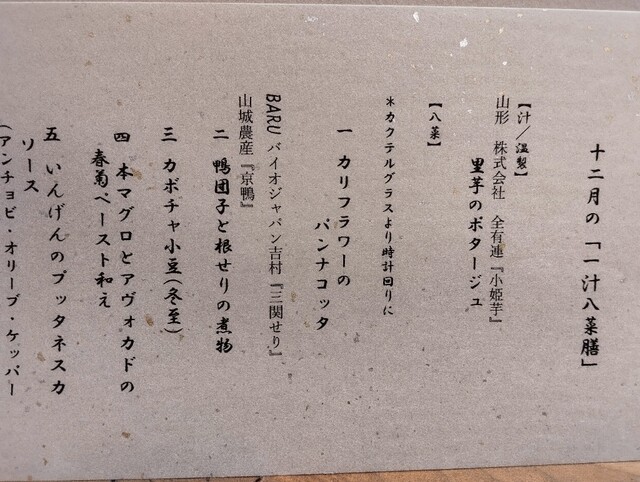 十二月の「一汁八菜膳」
【汁／温製】
山形　株式会社　全有連『小姫芋』
里芋のポタージュ
【八菜】
＊カクテルグラスより時計回りに
一　カリフラワーの
パンナコッタ
BARU バイオジャパン吉村『三関せり』
山城農産『京鴨』
二　鴨団子と根せりの煮物
三　カボチャ小豆（冬至）
四　本マグロとアヴォカドの
春菊ペースト和え
五　いんげんのプッタネスカ
ソース
（アンチョビ・オリーブ・ケッパー